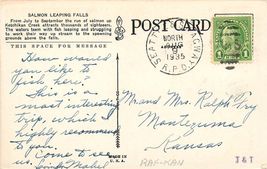 SALMON LEAPING FALLS
From July to September the run of salmon up
Ketchikan Creek attracts thousands of sightseers.
The waters teem with fish leaping and struggling
to work their way up stream to the spawning
grounds above the falls.
THIS SPACE FOR MESSAGE
POST CARD
NORTH
AUG
1935
R.P.O.
1
How would you
like to
fish here.
This is a
most interesting
trip, which I
highly recommend
to you.
Come to see
us.
Mabel
Mr. and Mrs. Ralph Fry
Montezuma
Kansas
MADE IN
U.S.A.
RAF-KAN
J & T